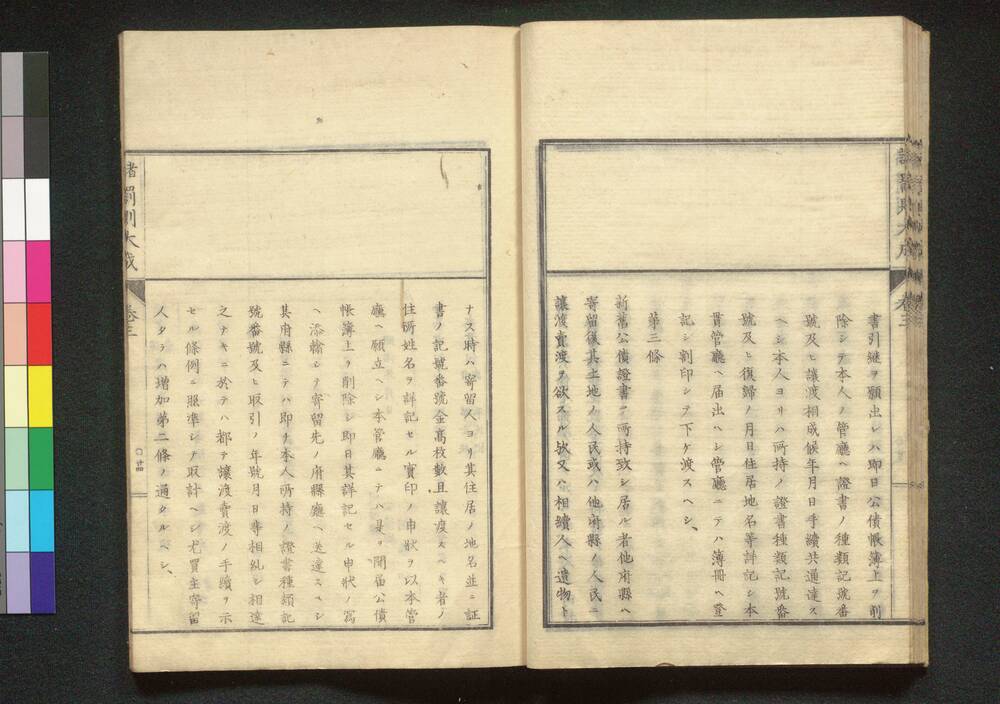 書引継ヲ願出レハ即日公債帳簿上ヲ削
除シテ本人ノ管廳ヘ證書ノ種類記號番
號及ヒ讓渡相成候年月日手續共通達ス
ヘシ本人ヨリハ所持ノ證書種類記號番
號及ヒ復歸ノ月日住居地名等詳記シ本
貫管廳ヘ届出ヘシ管廳ニテハ薄冊ヘ登
記シ割印シテ下ケ渡スヘシ、
第三條
新舊公債證書ヲ所持致シ居ル者他府縣ヘ
寄留後其土地ノ人民或ハ他府縣ノ人民ニ
讓渡賣渡ヲ欲スル欤又ハ相續人ヘ遺物ト
卷三
ナス時ハ寄留人ヨリ其住居ノ地名並ニ証
書ノ記號番號金高枚數且讓渡スヘキ者ノ
住所姓名ヲ詳記セル實印ノ申狀ヲ以本管
廳ヘ願立ヘシ本管廳ニテハ是ヲ聞届公債
帳簿上ヲ削除シ即日其詳記セル申狀ノ寫
ヘ添翰シテ寄留先ノ府縣廳ヘ送達スヘシ
其府縣ニテハ即チ本人所持ノ證書種類記
號番號及ヒ取引ノ年號月日等相糺シ相違
之ナキニ於テハ都テ讓渡賣渡ノ手續ヲ示
セル條例ニ照準シテ取計ヘシ尤買主寄留
人タラハ増加第二條ノ通タルヘシ、
諸罰則大成
卷三